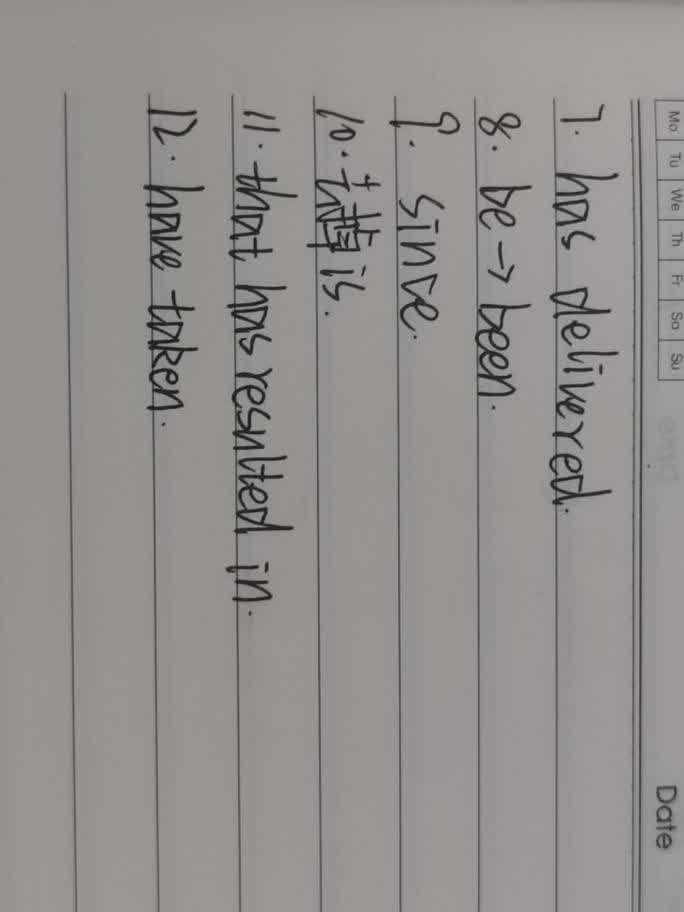 Mo Tu We Th Fr Sa Su Date
7. has delivered.
8. be→been.
9. since.
10. 去掉is.
11. that has resulted in.
12. have taken.